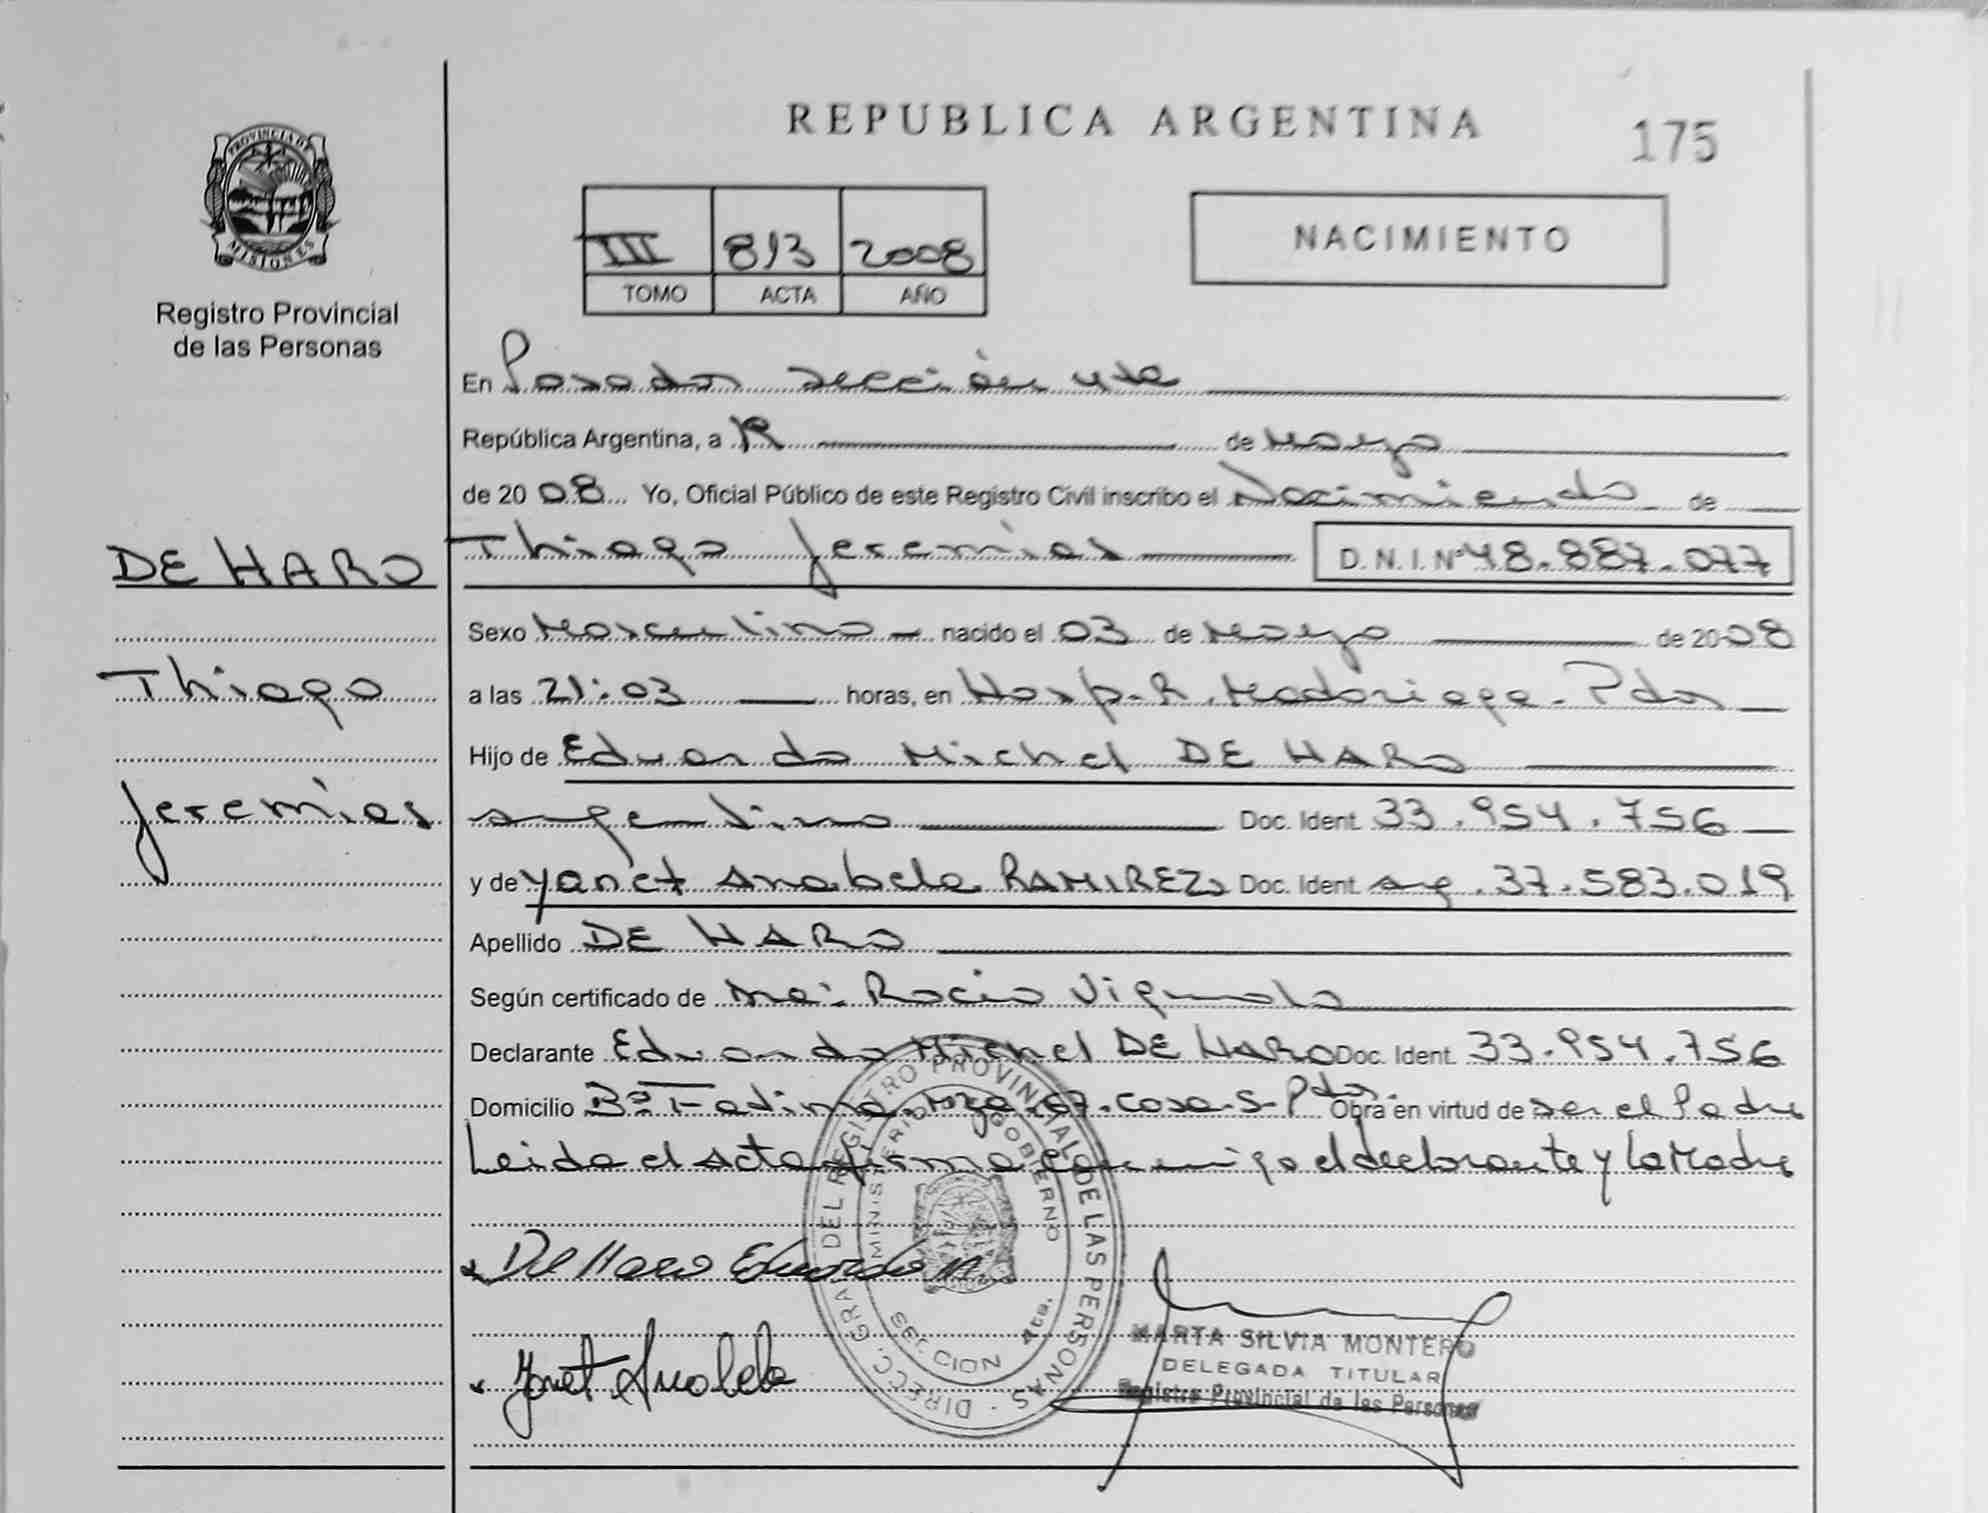 REPUBLICA ARGENTINA
175
PROVINCIA DE MISIONES
Registro Provincial
de las Personas
III 813 2008
TOMO ACTA AÑO
NACIMIENTO
En Posadas sección 
República Argentina, a de Mayo
de 2008 Yo, Oficial Público de este Registro Civil inscribo el Nacimiento de
DE HARO
Thiago Jeremías D.N.I. Nº 48.887.077
Sexo Masculino nacido el 03 de Mayo de 2008
Thiago
a las 21:03 horas, en Hosp. R. Madariaga - Pdas
Hijo de Eduardo Michel DE HARO
Jeremías
argentino Doc. Ident. 33.954.756
y de Yanet Anabela RAMIREZ Doc. Ident. arg. 37.583.019
Apellido DE HARO
Según certificado de Rocio Vignolo
Declarante Eduardo Michel DE HARO Doc. Ident. 33.954.756
Domicilio Bº Fatima casa 5 - Pdas. Obra en virtud de ser el Padre
Leida el acta firma conmigo el declarante y la Madre
De Haro Eduardo M.
Yanet Anabela
DIRECC. GRAL DEL REGISTRO PROVINCIAL DE LAS PERSONAS
MINISTERIO GOBIERNO
MARTA SILVIA MONTERO
DELEGADA TITULAR
Registro Provincial de las Personas